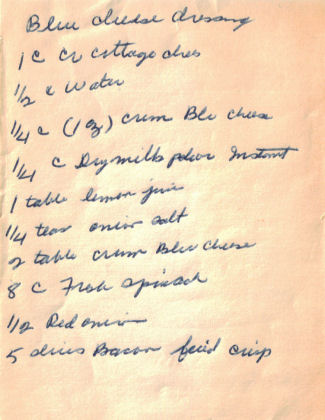 Blue cheese dressing
1 C Cr cottage chees
1/2 c Water
1/4 c (1 oz) crum Blu cheese
1/4 C Dry milk powr Instant
1 table lemon juic
1/4 teas onion salt
2 table crum Bleu cheese
8 C Fresh spinach
1/2 Red onion
5 slices Bacon fried crisp